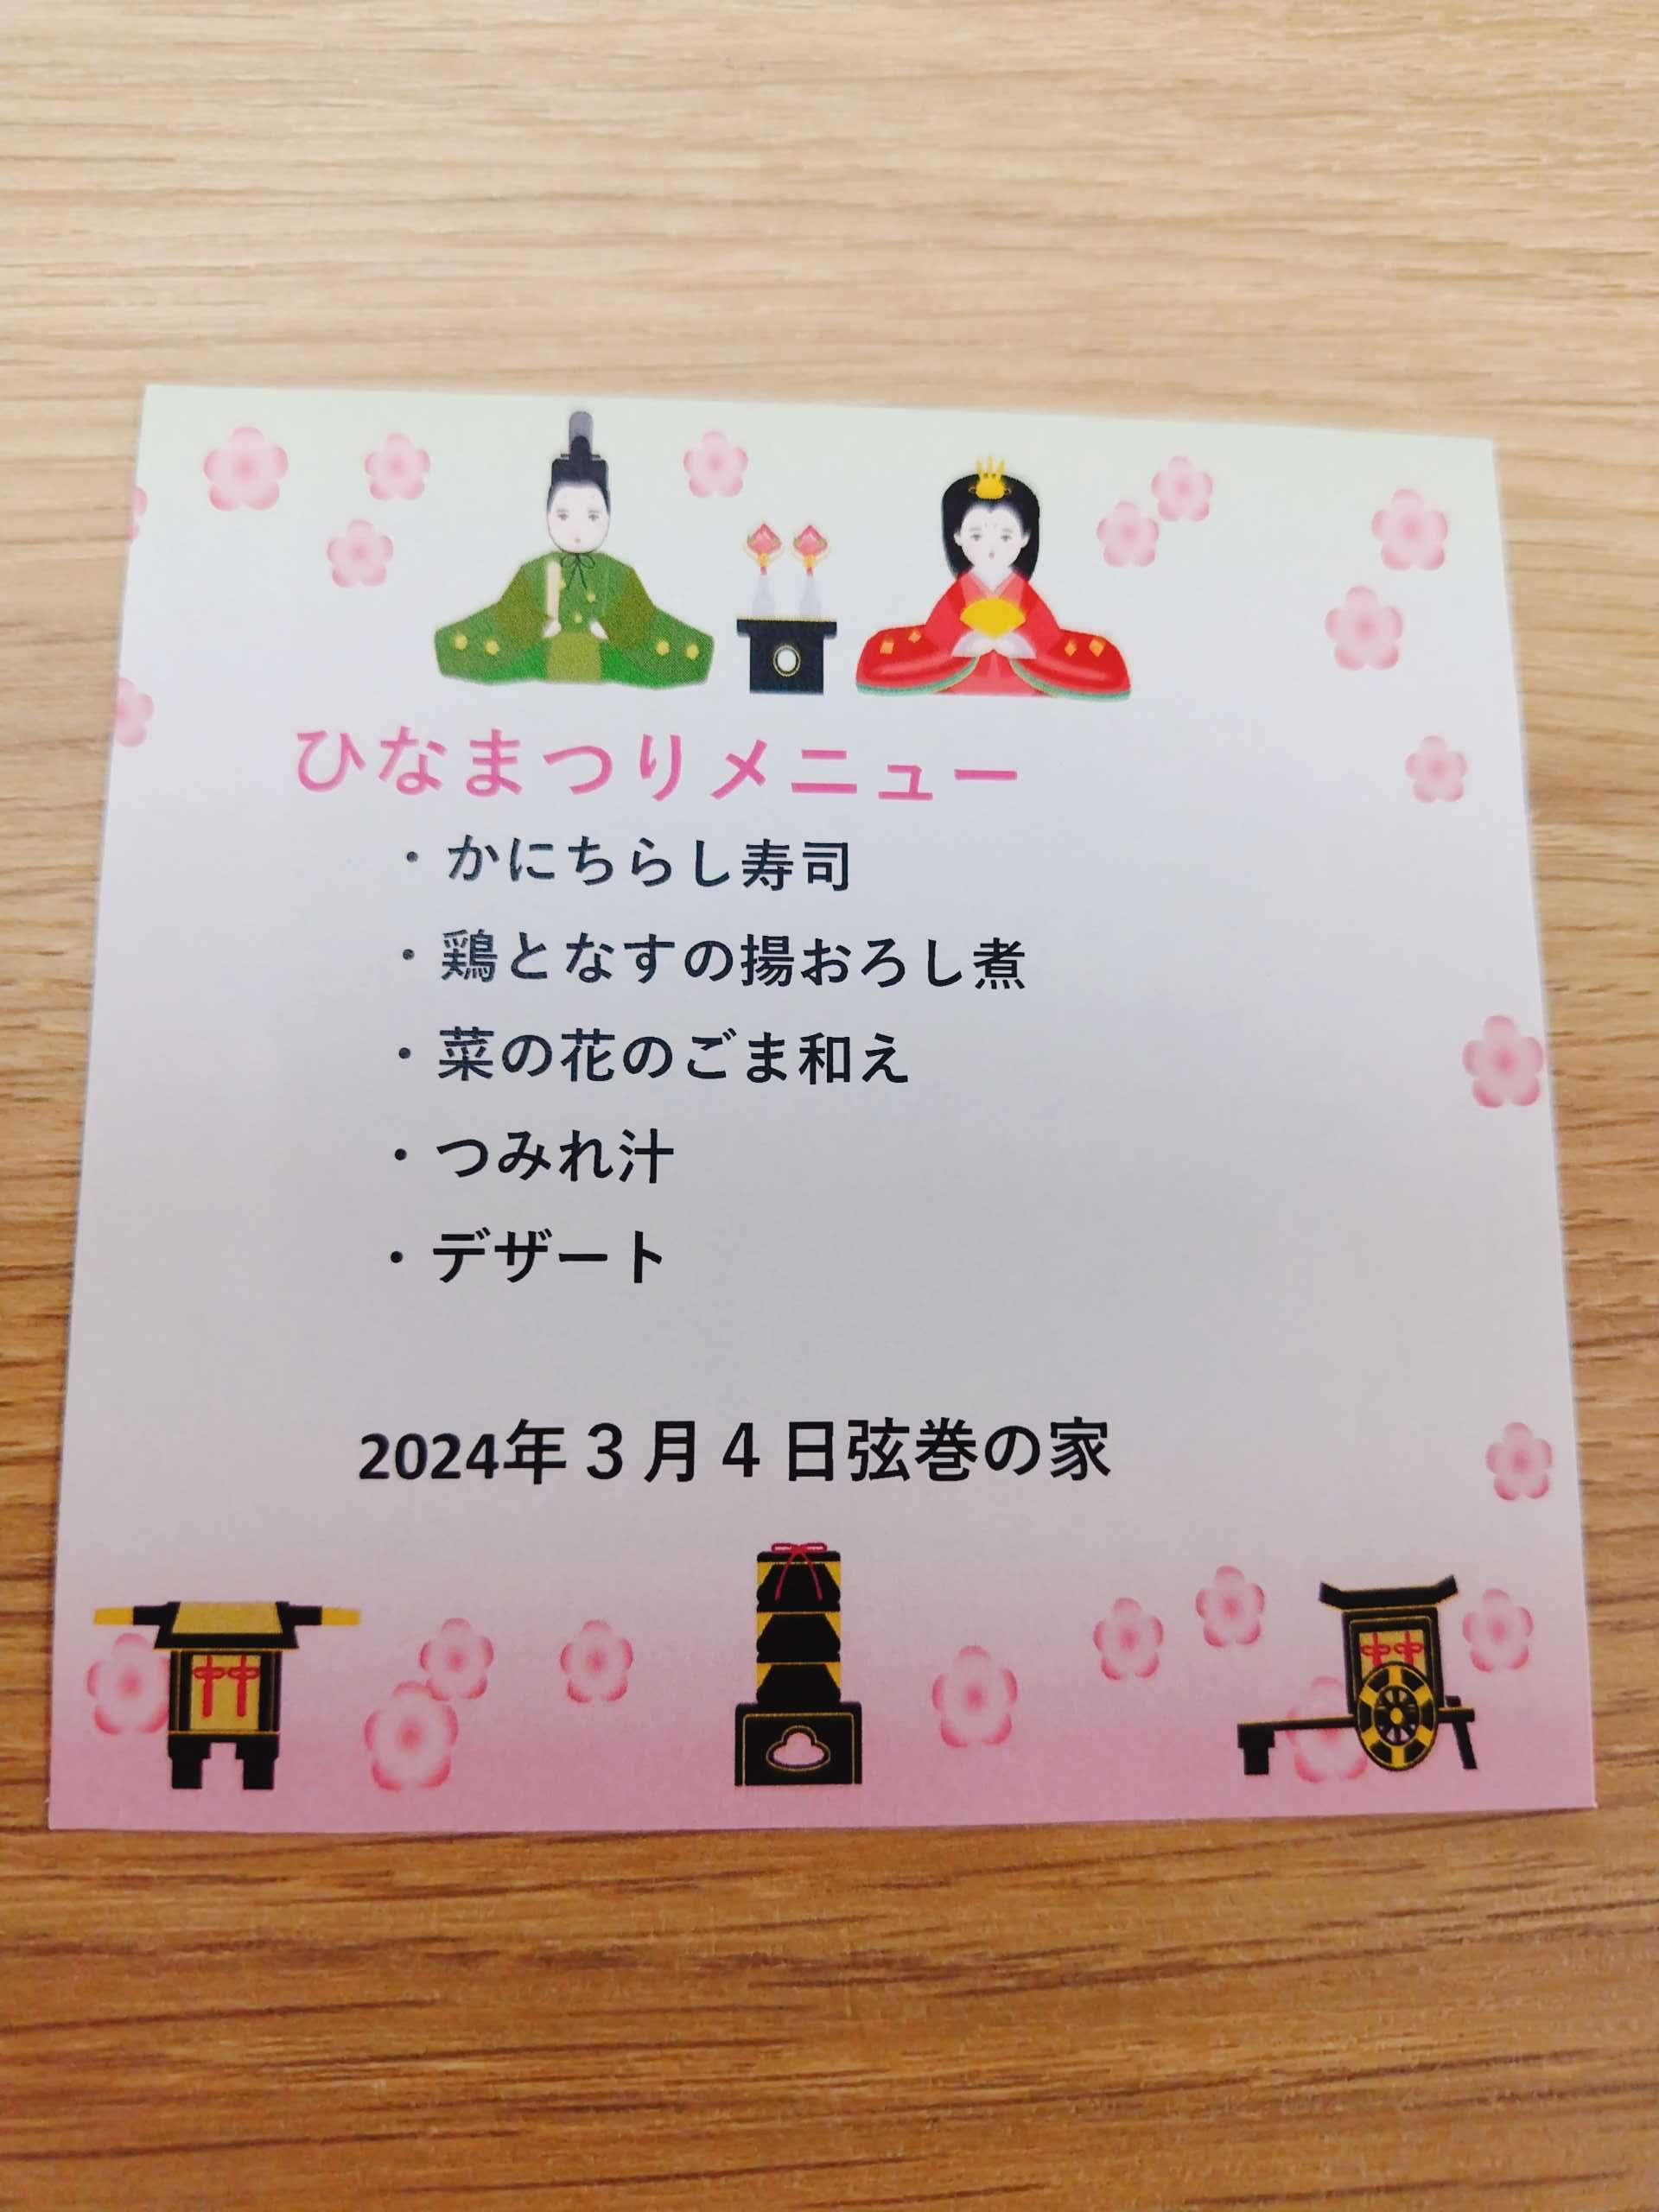 ひなまつりメニュー
・かにちらし寿司
・鶏となすの揚おろし煮
・菜の花のごま和え
・つみれ汁
・デザート
2024年３月４日弦巻の家